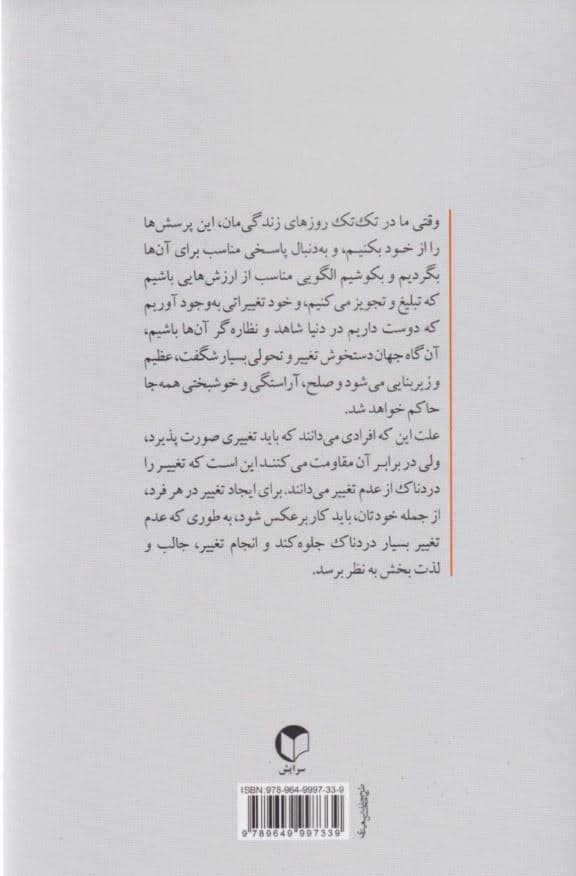 وقتی ما در تک‌تک روزهای زندگی‌مان، این پرسش‌ها
را از خود بکنیم، و به‌دنبال پاسخی مناسب برای آن‌ها
بگردیم و بکوشیم الگویی مناسب از ارزش‌هایی باشیم
که تبلیغ و تجویز می‌کنیم، و خود تغییراتی به‌وجود آوریم
که دوست داریم در دنیا شاهد و نظاره‌گر آن‌ها باشیم،
آن‌گاه جهان دستخوش تغییر و تحولی بسیار شگفت، عظیم
و زیربنایی می‌شود و صلح، آراستگی و خوشبختی همه‌جا
حاکم خواهد شد.
علت این که افرادی می‌دانند که باید تغییری صورت پذیرد،
ولی در برابر آن مقاومت می‌کنند این است که تغییر را
دردناک از عدم تغییر می‌دانند. برای ایجاد تغییر در هر فرد،
از جمله خودتان، باید کار برعکس شود، به طوری که عدم
تغییر بسیار دردناک جلوه کند و انجام تغییر، جالب و
لذت بخش به نظر برسد.
سرایش
ISBN:978-964-9997-33-9
9 789649 997339